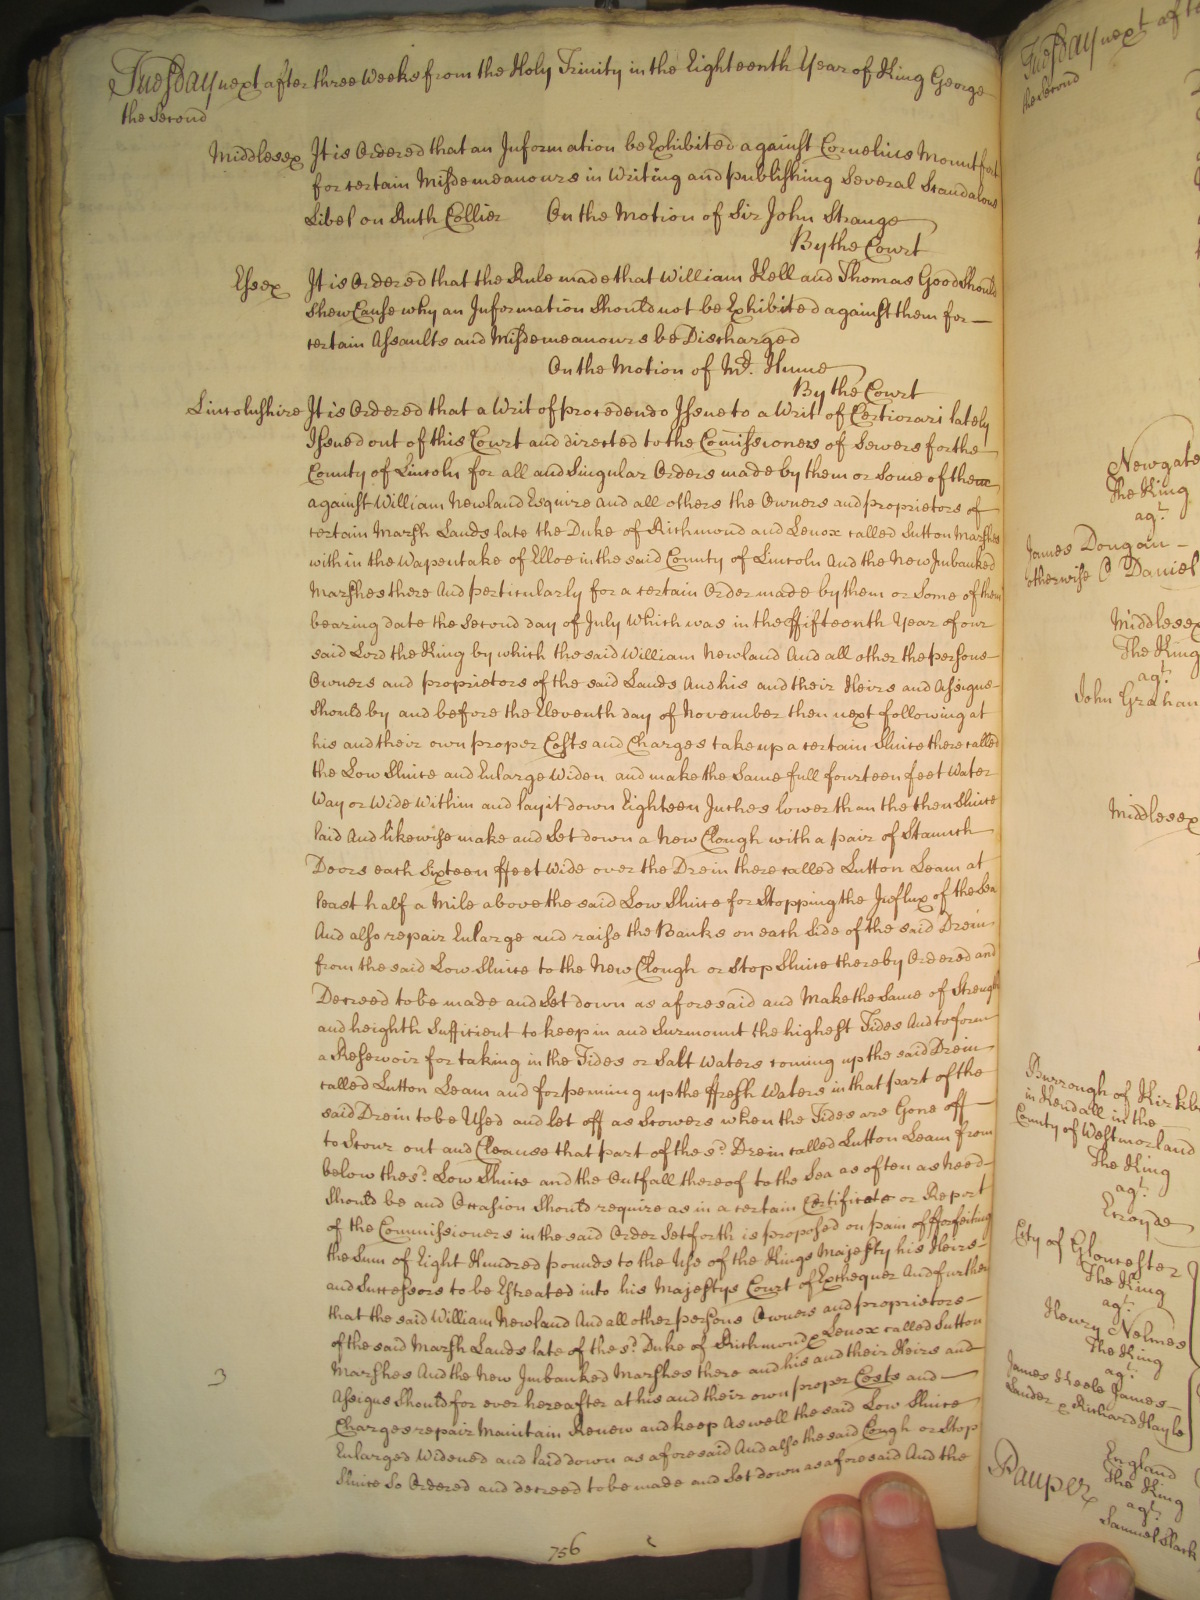 Tuesday next after three Weeks from the Holy Trinity in the Eighteenth Year of King George
the Second
Middlesex It is Ordered that an Information be Exhibited against Cornelius Mountfort
for certain Misdemeanours in Writing and publishing Several Scandalous
Libel on Ruth Collier On the Motion of Sir John Strange
By the Court
Essex It is Ordered that the Rule made that William Kell and Thomas Good Should
Shew Cause why an Information Should not be Exhibited against them for
certain Assaults and Misdemeanours be Discharged
On the Motion of Mr. Hume
By the Court
Lincolnshire It is Ordered that a Writ of procedendo Issue to a Writ of Certiorari lately
Issued out of this Court and directed to the Comissioners of Sewers for the
County of Lincoln for all and Singular Orders made by them or Some of them
against William Newland Esquire and all others the Owners and proprietors of
certain Marsh Lands late the Duke of Richmond and Lenox called Sutton Marshes
with in the Wapentake of Elloe in the said County of Lincoln And the New Imbanked
Marshes there And perticularly for a certain Order made by them or Some of them
bearing date the Second day of July Which was in the ffifteenth Year of our
said Lord the King by which the said William Newland And all other the persons
Owners and proprietors of the said Lands And his and their Heirs and Assigns
Should by and before the Eleventh day of November then next following at
his and their own proper Costs and Charges take up a certain Sluice there called
the Low Sluice and Enlarge Widen and make the Same full fourteen feet Water
Way or Wide Within and lay it down Eighteen Inches lower than the then Sluice
laid And likewise make and Set down a New Clough with a pair of Staunch
Doors each Sixteen ffeet Wide over the Drein there called Lutton Leam at
least half a Mile above the said Low Sluice for Stopping the Influx of the Sea
And also repair Enlarge and raise the Banks on each Side of the said Drein
from the said Low Sluice to the New Clough or Stop Sluice thereby Ordered and
Decreed to be made and Set down as aforesaid and Make the Same of Strength
and heighth Sufficient to keep in and Surmount the highest Tides And to form
a Reservoir for taking in the Tides or Salt Waters coming up the said Drein
called Lutton Leam and for penning up the ffresh Waters in that part of the
said Drein to be Used and let off as Scowers when the Tides are Gone off
to Scour out and Cleanse that part of the sd. Drein called Lutton Leam from
below the sd. Low Sluice and the Outfall thereof to the Sea as often as need
Should be and Occasion Should require as in a certain Certificate or Report
of the Commissioners in the said Order Set forth is proposed on pain of fforfeiting
the Sum of Eight Hundred pounds to the Use of the Kings Majesty his Heirs
and Successors to be Estreated into his Majestys Court of Exchequer And further
that the said William Newland And all other persons Owners and proprietors
of the said Marsh Lands late of the sd. Duke of Richmond & Lenox called Sutton
Marshes And the New Imbanked Marshes there and his and their Heirs and
Assigns Should for ever hereafter at his and their own proper Costs and
Charges repair Maintain Renew and keep As well the said Low Sluice
Enlarged Widened and laid down as aforesaid And also the said Clough or Stop
Sluice So Ordered and decreed to be made and Set down as aforesaid And the
3
756
Tuesday next after
the Second
Newgate
The King
agt.
James Dongan
otherwise O Daniel
Middlesex
The King
agt.
John Graham
Middlesex
Burrough of Kirkby
in Kendall in the
County of Westmorland
The King
agt.
City of Gloucester
The King
agt.
Henry Nelmes
The King
agt.
James Keele James
Lander & Richard Hayle
England
The King
agt.
Samuel Slack
Pauper